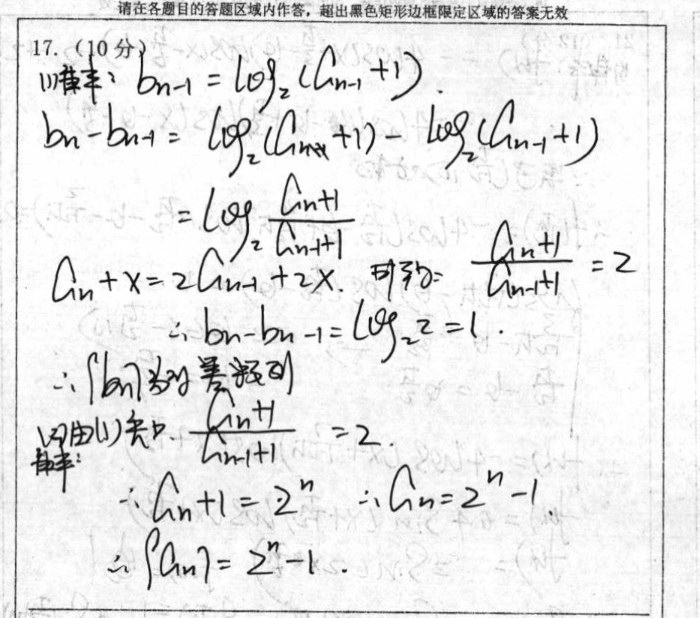 请在各题目的答题区域内作答，超出黑色矩形边框限定区域的答案无效
17.（10分）
(1)解: bn-1 = log₂(an-1+1).
bn-bn-1 = log₂(an+1) - log₂(an-1+1)
= log₂ (an+1)/(an-1+1)
an+x=2an-1+2x. 可知: (an+1)/(an-1+1) = 2
∴ bn-bn-1 = log₂2 = 1.
∴ {bn}为等差数列
(2)由(1)知 (an+1)/(an-1+1) = 2.
解:
∴ an+1 = 2ⁿ ∴ an = 2ⁿ-1
∴ {an} = 2ⁿ-1.